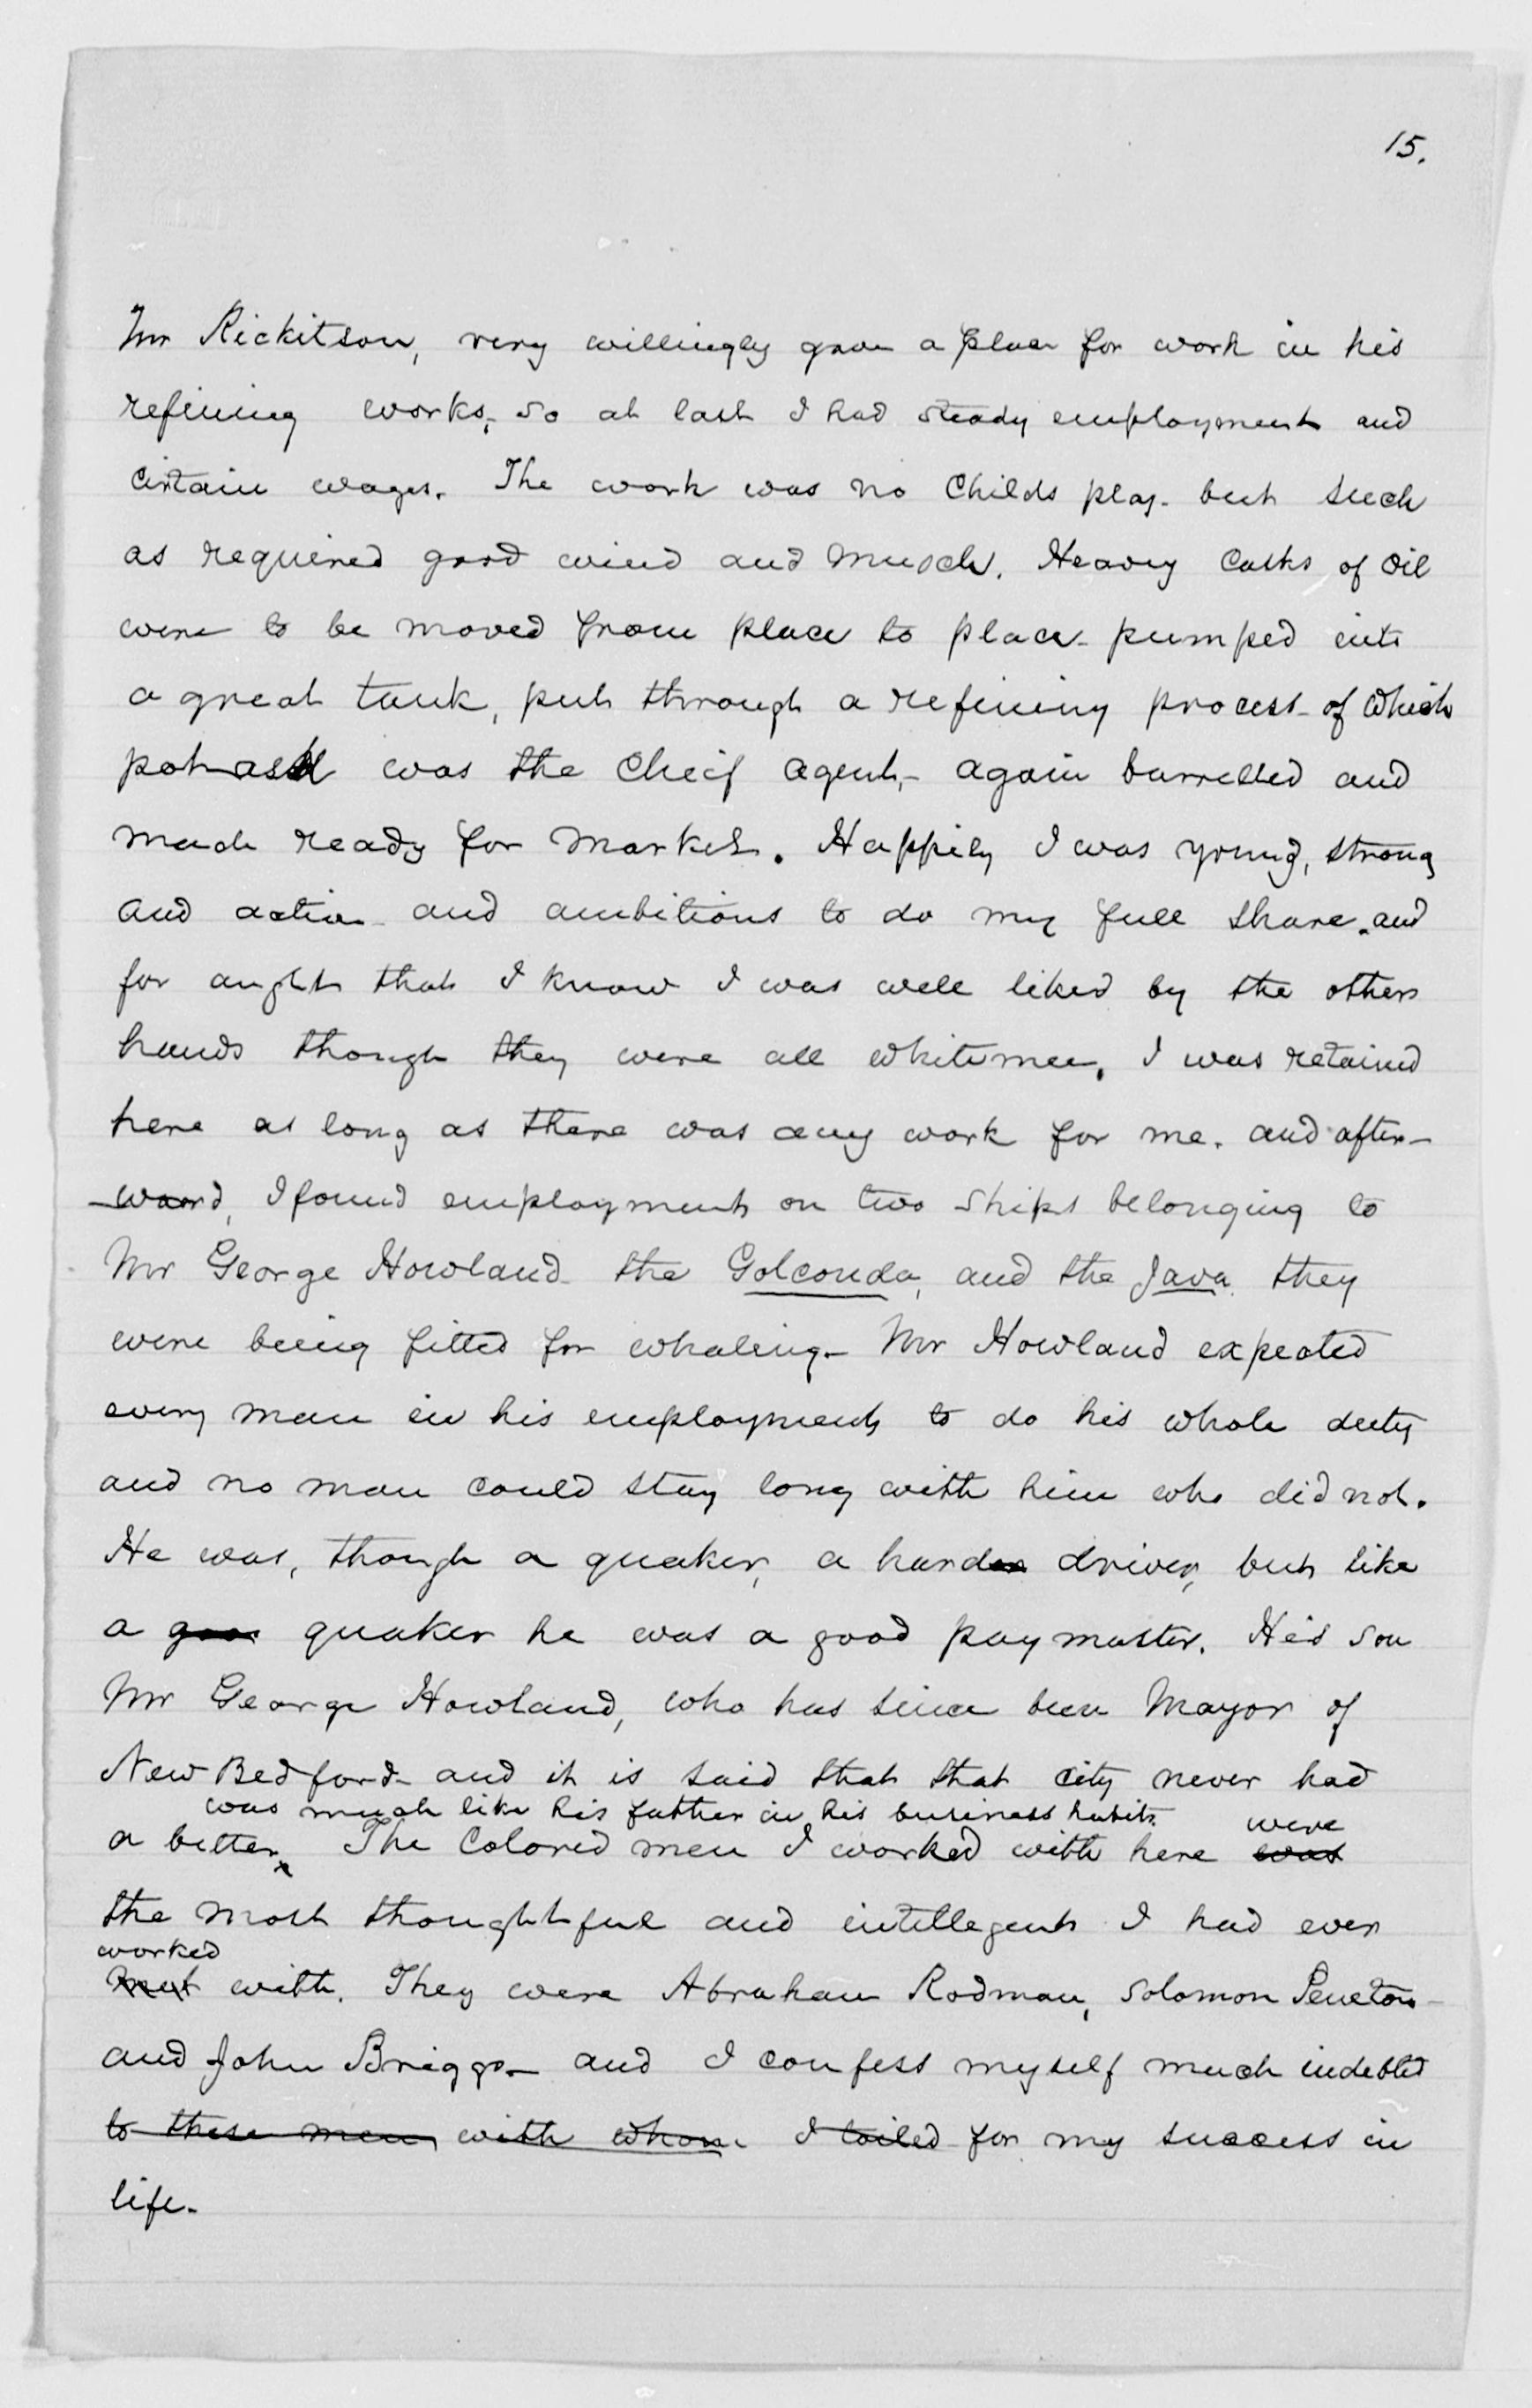 15.
Mr Rickitson, very willingly gave a place for work in his
refining works, so at last I had steady employment and
certain wages. The work was no childs play - but such
as required good wind and muscle. Heavy casks of oil
were to be moved from place to place - pumped into
a great tank, put through a refining process - of which
potash was the cheif agent, - again barrelled and
made ready for market. Happily I was young, strong
and active - and ambitious to do my full share. and
for aught that I know I was well liked by the other
hands though they were all white men. I was retained
here as long as there was any work for me. and after-
-ward, I found employment on two ships belonging to
Mr George Howland - the Golconda, and the Java. they
were being fitted for whaling - Mr Howland expected
every man in his employment to do his whole duty
and no man could stay long with him who did not.
He was, though a quaker, a harder driver, but like
a good quaker he was a good paymaster. His son
Mr George Howland, who has since been Mayor of
New Bedford - and it is said that that city never had
was much like his father in his business habits. were
a better x The Colored men I worked with here was
the most thoughtful and intellegent I had ever
worked
met with. They were Abraham Rodman, Solomon Peneton -
and John Briggs - and I confess myself much indebted
to these men, with whom I toiled for my success in
life -